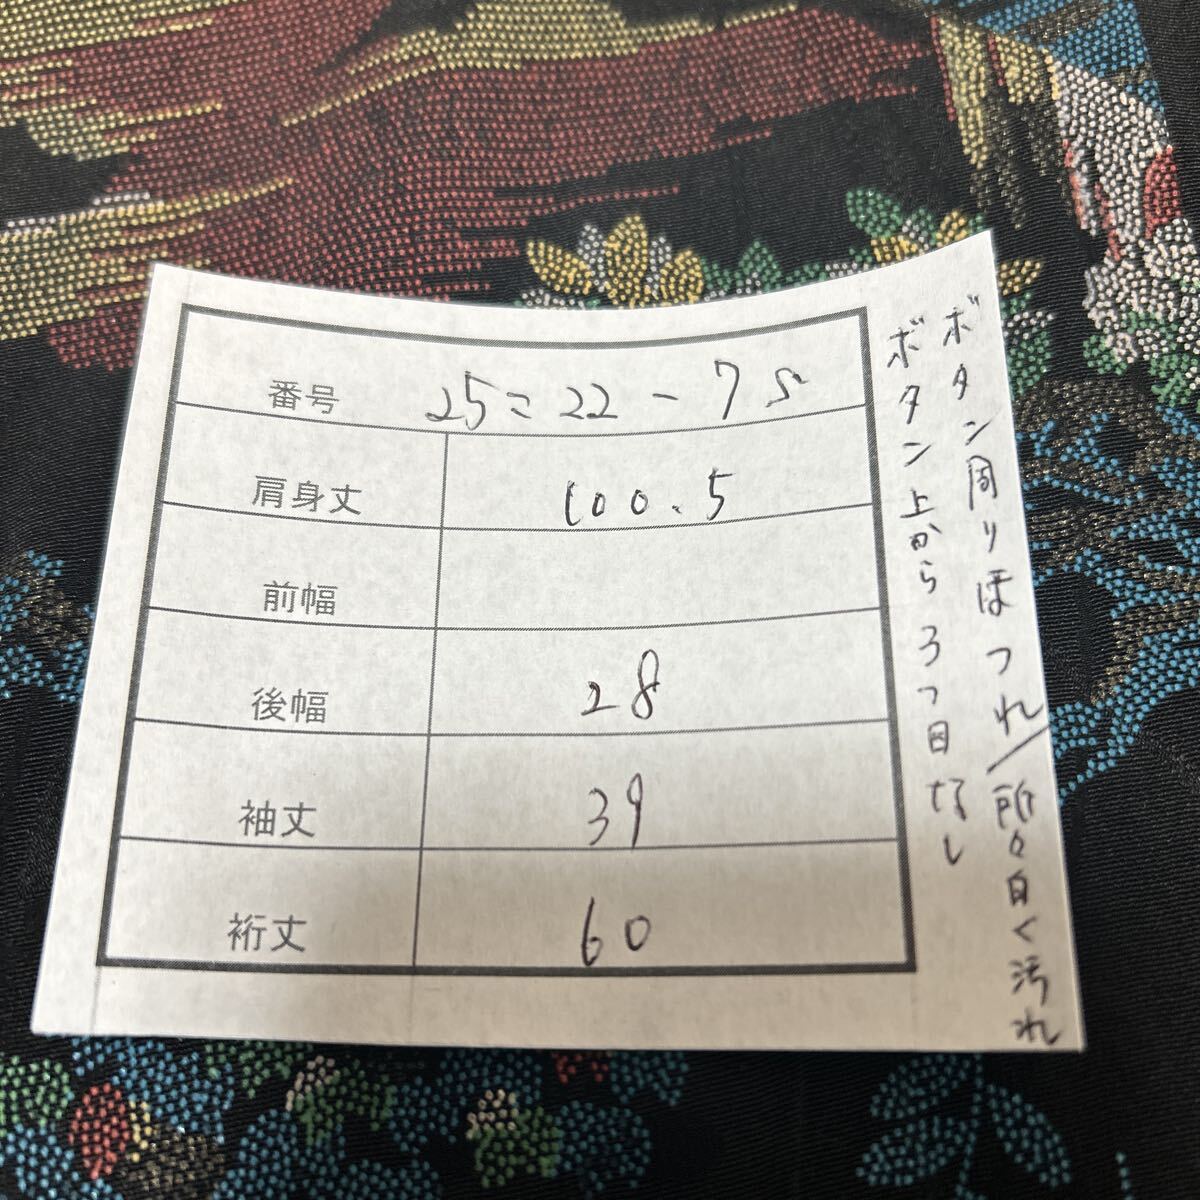 番号 25ニ22-7S
肩身丈 100.5
前幅
後幅 28
袖丈 39
裄丈 60
ボタン周りほつれ/所々白く汚れ
ボタン上から3つ目なし